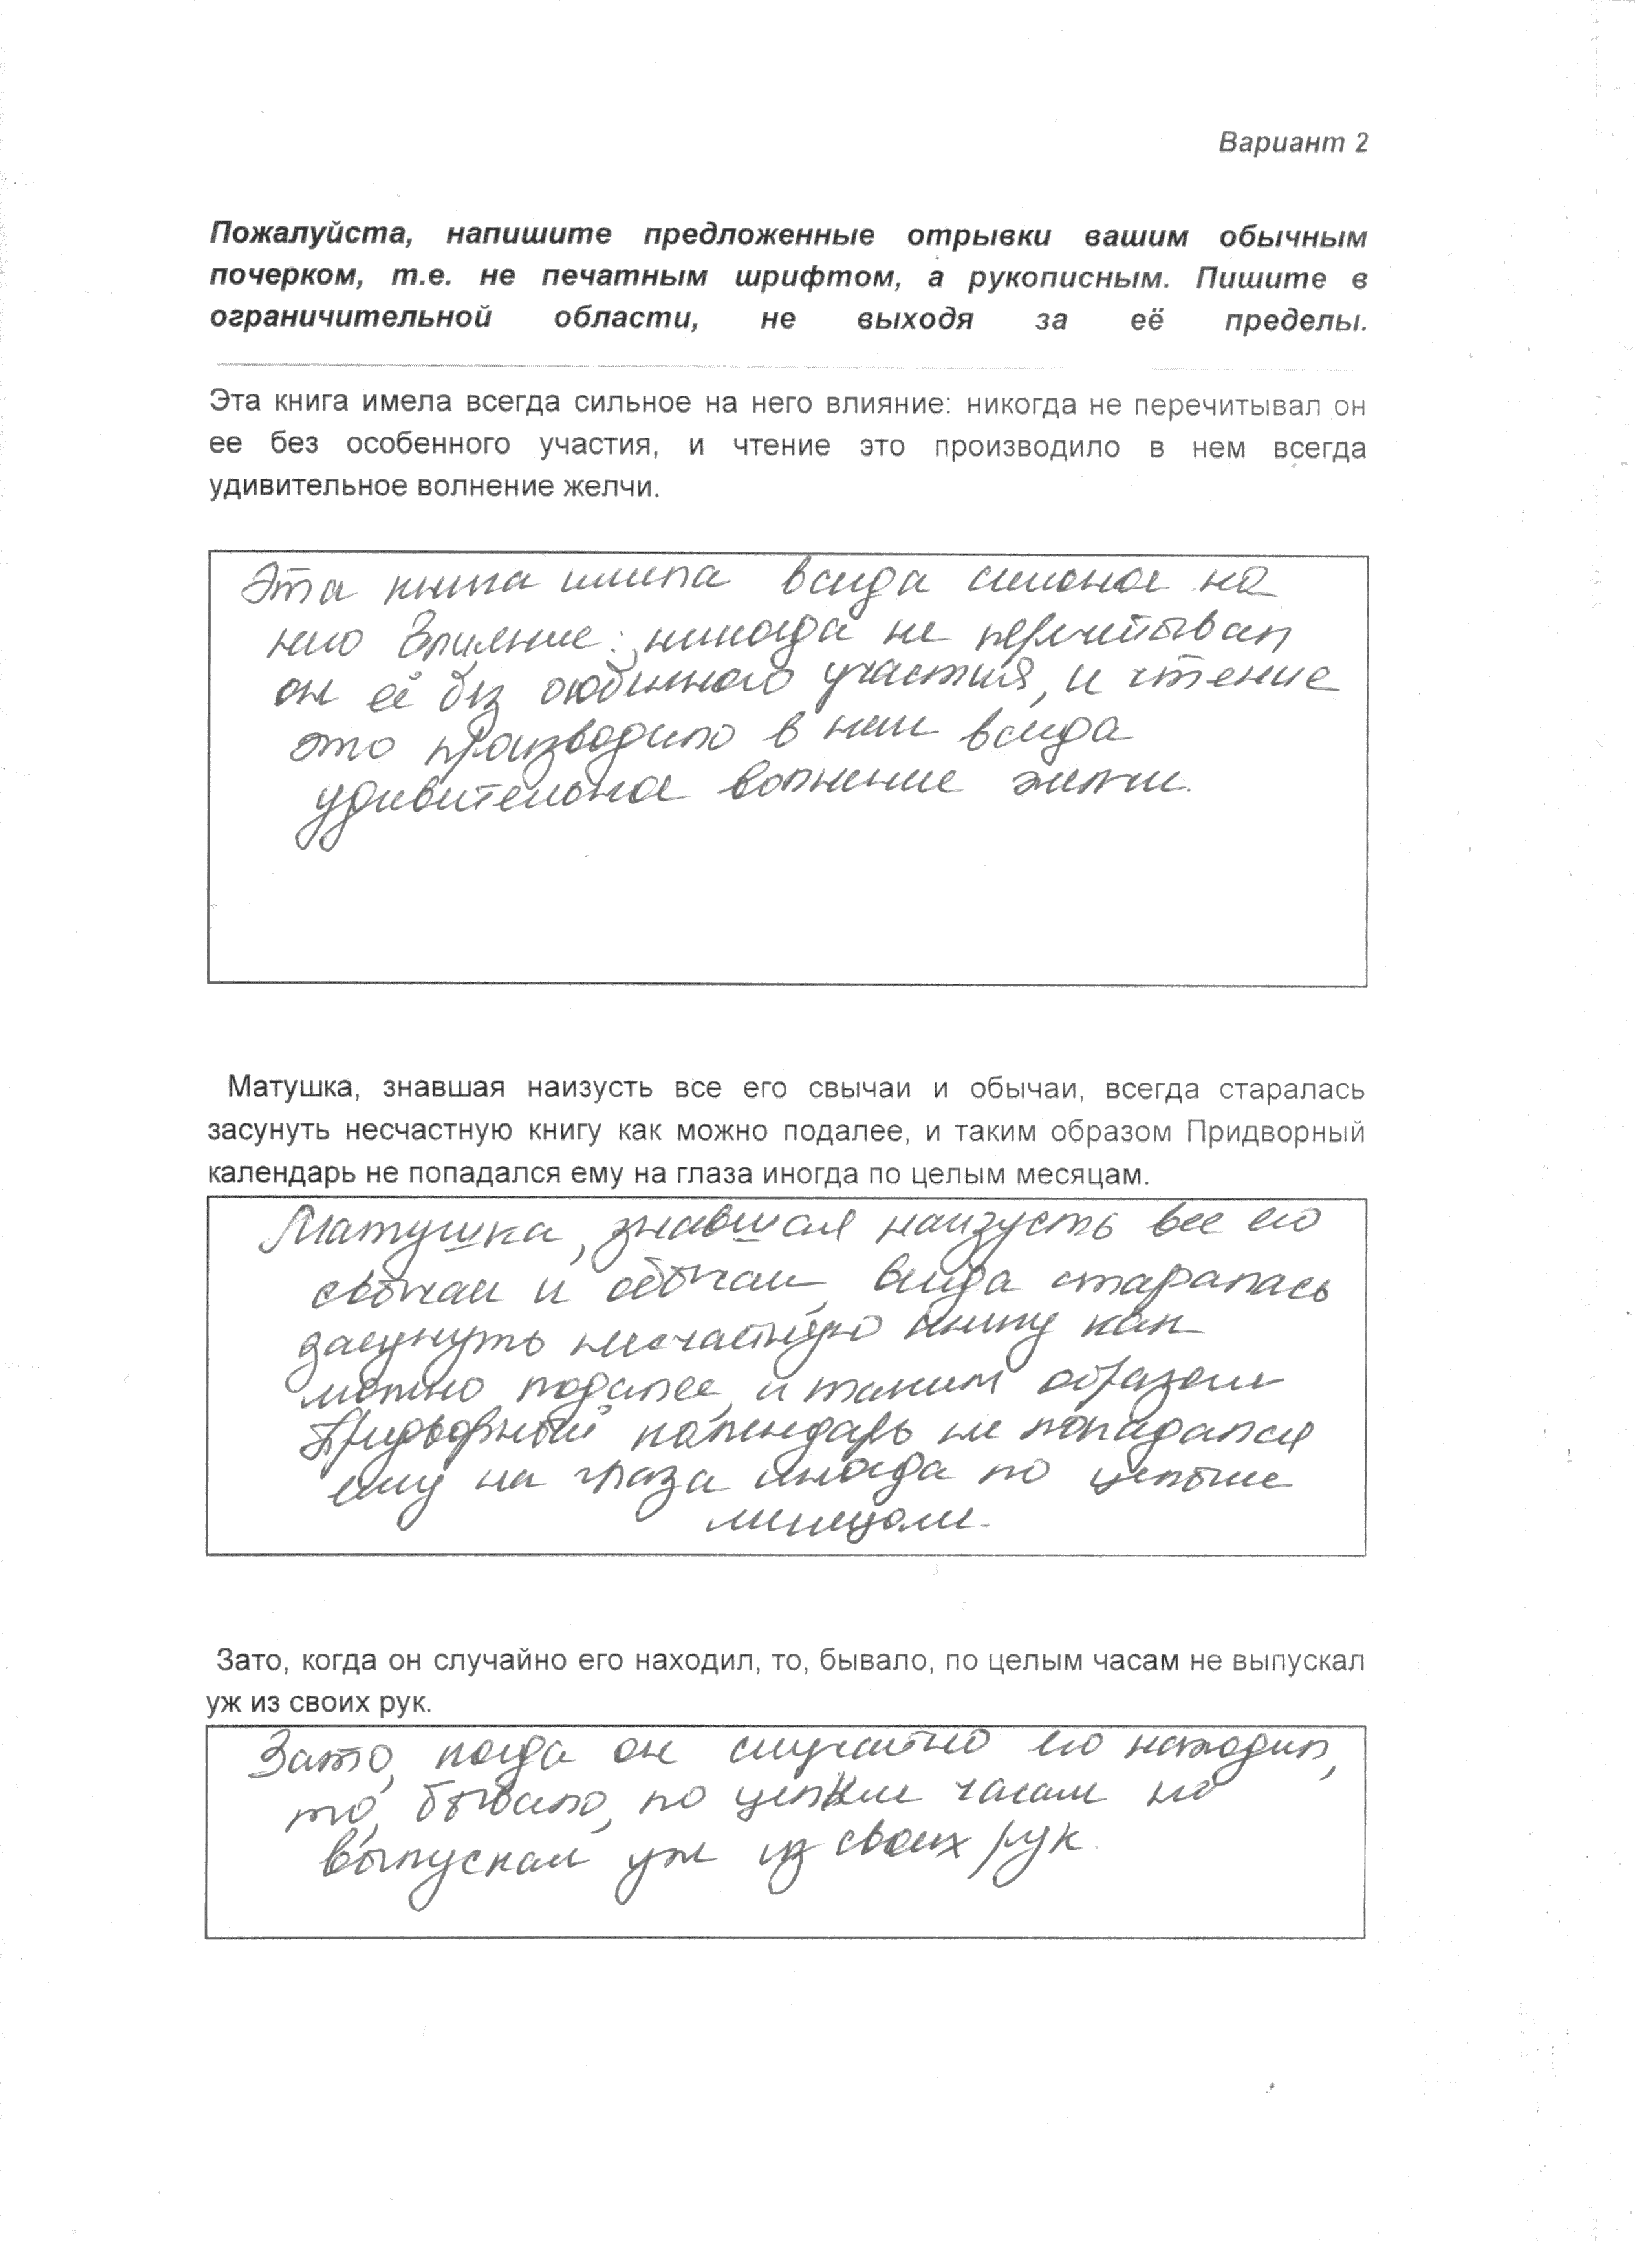 Вариант 2
Пожалуйста, напишите предложенные отрывки вашим обычным
почерком, т.е. не печатным шрифтом, а рукописным. Пишите в
ограничительной области, не выходя за её пределы.
Эта книга имела всегда сильное на него влияние: никогда не перечитывал он
ее без особенного участия, и чтение это производило в нем всегда
удивительное волнение желчи.
Эта книга имела всегда сильное на
него влияние: никогда не перечитывал
он её без особенного участия, и чтение
это производило в нем всегда
удивительное волнение желчи.
Матушка, знавшая наизусть все его свычаи и обычаи, всегда старалась
засунуть несчастную книгу как можно подалее, и таким образом Придворный
календарь не попадался ему на глаза иногда по целым месяцам.
Матушка, знавшая наизусть все его
свычаи и обычаи, всегда старалась
засунуть несчастную книгу как
можно подалее, и таким образом
Придворный календарь не попадался
ему на глаза иногда по целым
месяцам.
Зато, когда он случайно его находил, то, бывало, по целым часам не выпускал
уж из своих рук.
Зато, когда он случайно его находил,
то, бывало, по целым часам не
выпускал уж из своих рук.